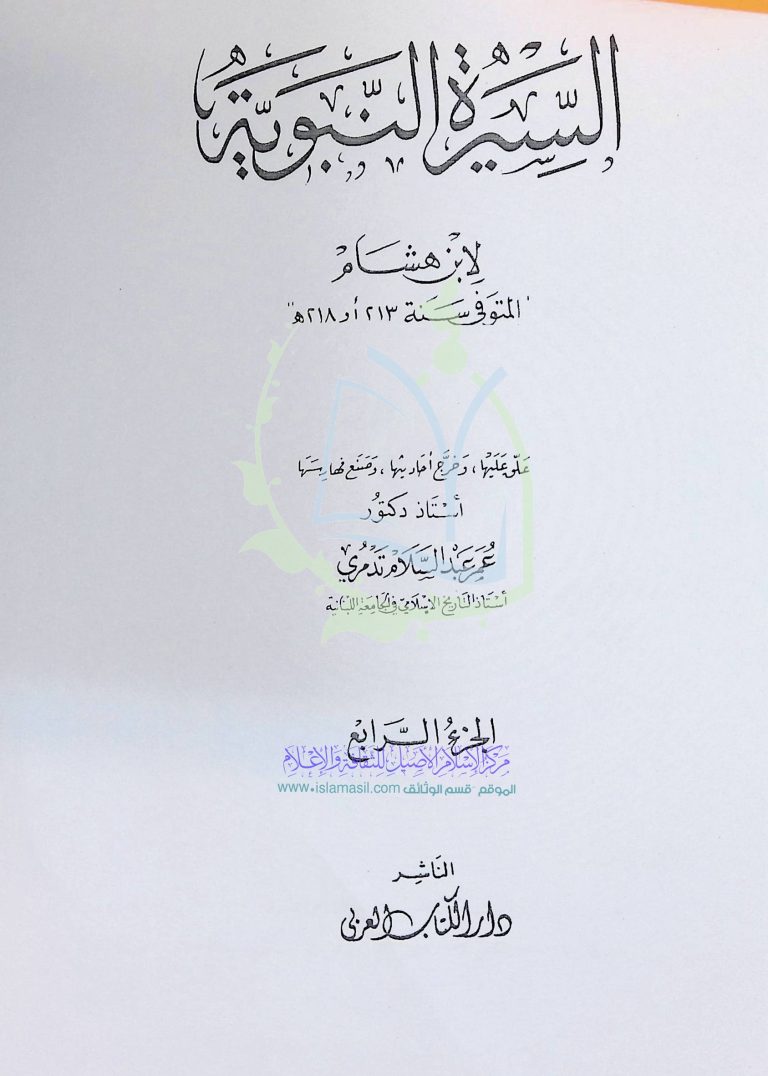 السِّيرَة النَّبَويَّة
لِابْن هشَام
"المتوفى سَنَة ٢١٣ أو ٢١٨ هـ"
علّق عَلَيْها، وَخرَّج أحَاديثها، وَصَنع فهَارسَها
أستَاذ دكتوُر
عُمَر عَبْد السَّلَام تَدْمُري
أستَاذ التَّاريخ الإسْلَاميّ في الجَامعَة اللبْنانيَّة
الجزءُ الرَّابع
مركز الإسلام الأصيل للثقافة والإعلام
الموقع - قسم الوثائق www.islamasil.com
النَاشِر
دار الكتاب العربي